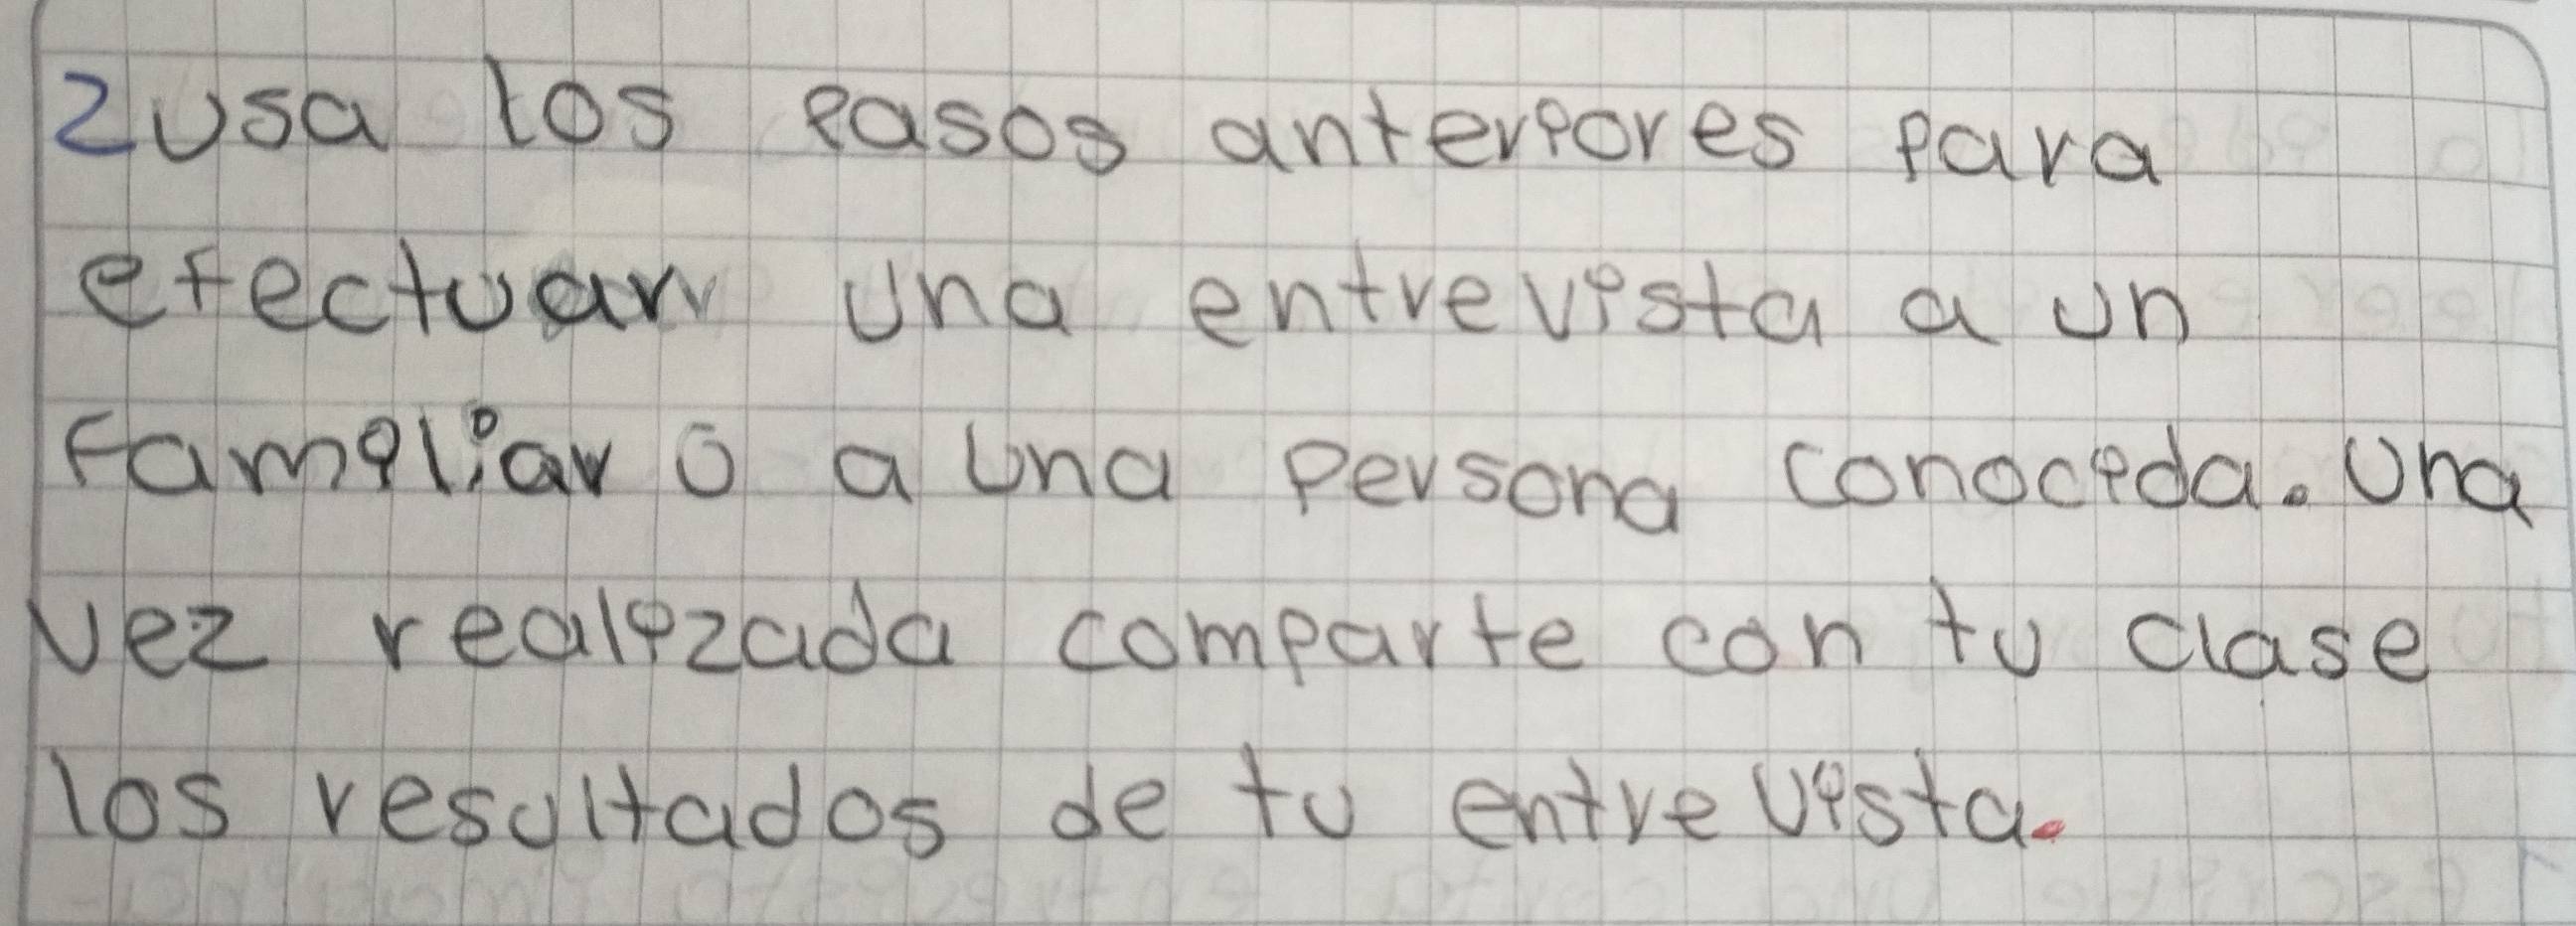 2 usa los pasos anteriores para
efectuar una entrevista a un
familiar o a una persona conocida. Una
vez realizada comparte con tu clase
los resultados de tu entrevista.